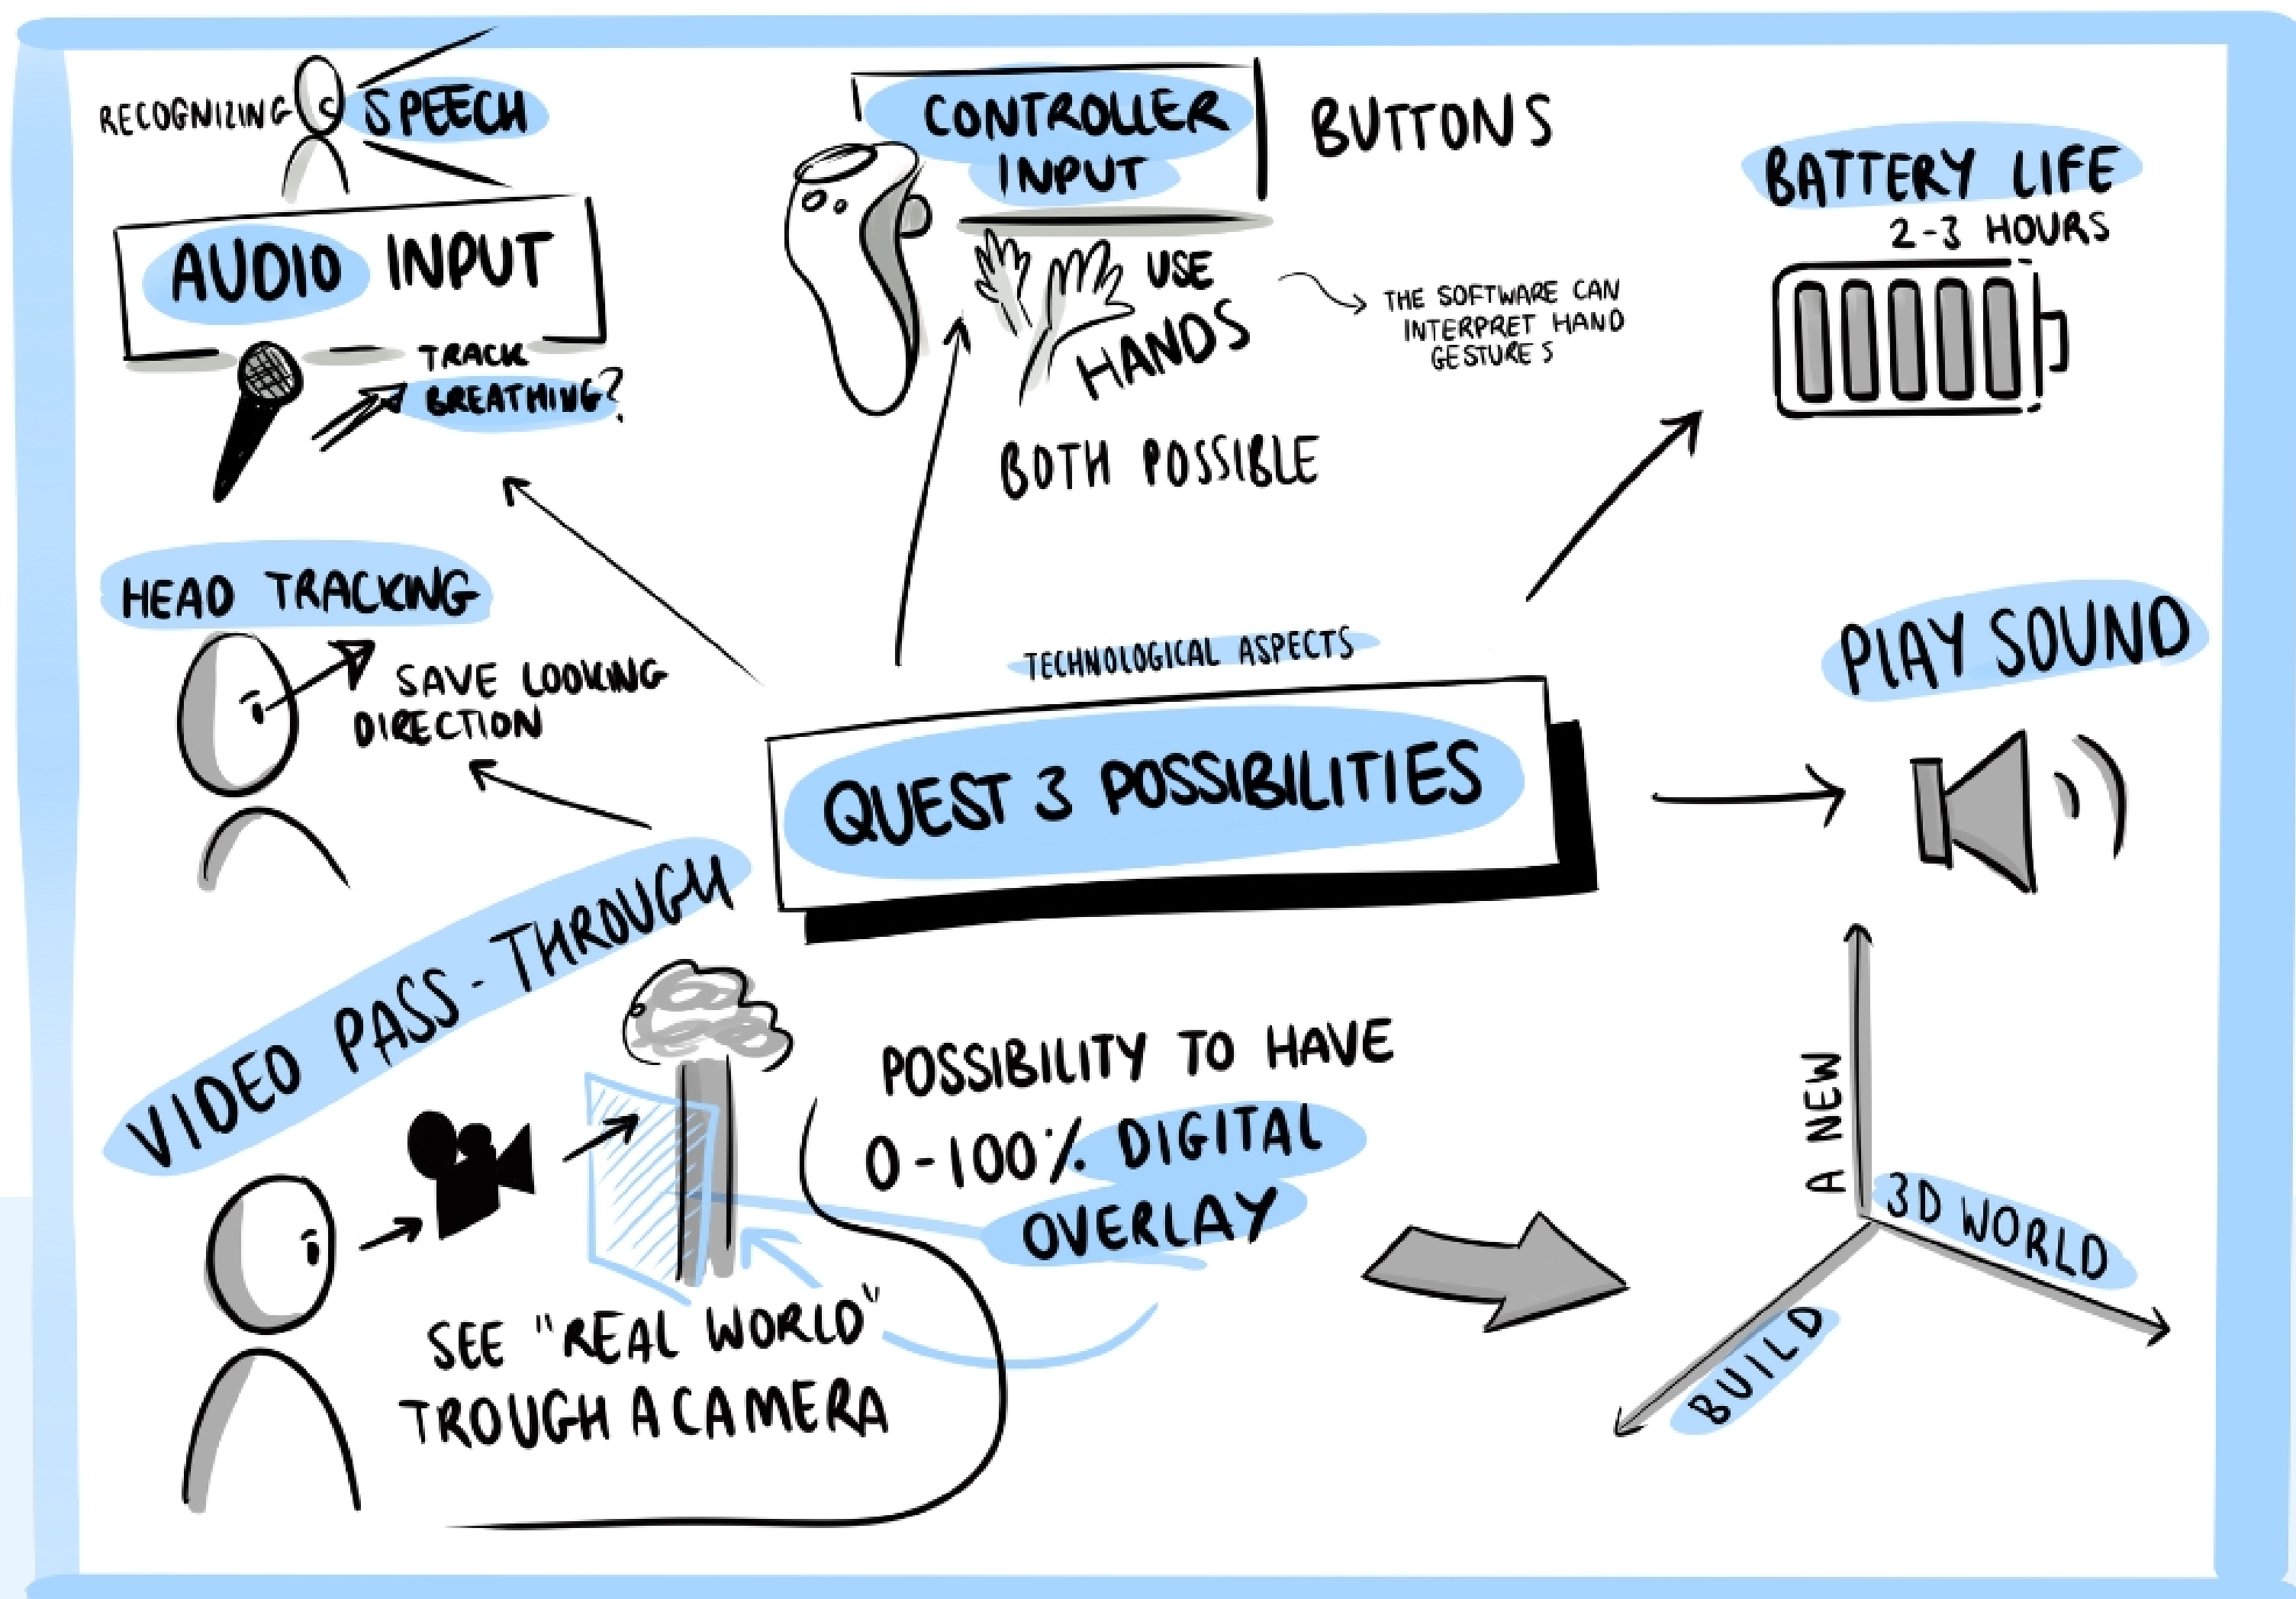 RECOGNIZING SPEECH
AUDIO INPUT
TRACK
BREATHING?
CONTROLLER
INPUT
BUTTONS
USE
HANDS
THE SOFTWARE CAN
INTERPRET HAND
GESTURES
BOTH POSSIBLE
BATTERY LIFE
2-3 HOURS
HEAD TRACKING
SAVE LOOKING
DIRECTION
TECHNOLOGICAL ASPECTS
QUEST 3 POSSIBILITIES
PLAY SOUND
VIDEO PASS-THROUGH
SEE "REAL WORLD"
TROUGH A CAMERA
POSSIBILITY TO HAVE
0-100% DIGITAL
OVERLAY
BUILD
A NEW
3D WORLD